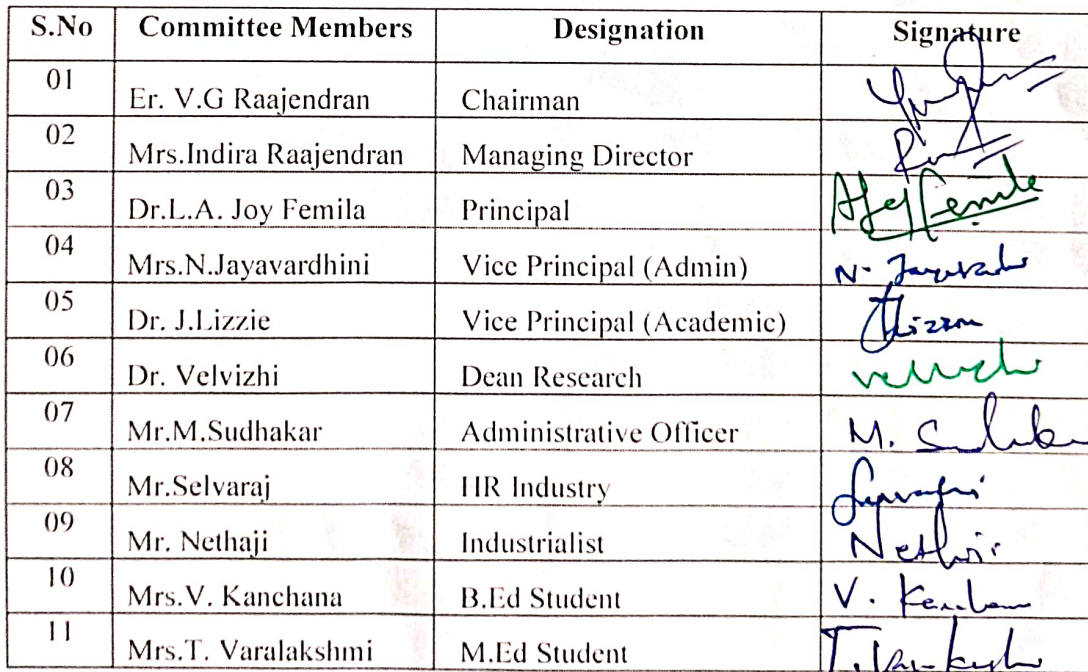 S.No Committee Members Designation Signature
01 Er. V.G Raajendran Chairman
02 Mrs.Indira Raajendran Managing Director
03 Dr.L.A. Joy Femila Principal
04 Mrs.N.Jayavardhini Vice Principal (Admin)
05 Dr. J.Lizzie Vice Principal (Academic)
06 Dr. Velvizhi Dean Research
07 Mr.M.Sudhakar Administrative Officer M.
08 Mr.Selvaraj HR Industry
09 Mr. Nethaji Industrialist Nethaji
10 Mrs.V. Kanchana B.Ed Student V.
11 Mrs.T. Varalakshmi M.Ed Student T.